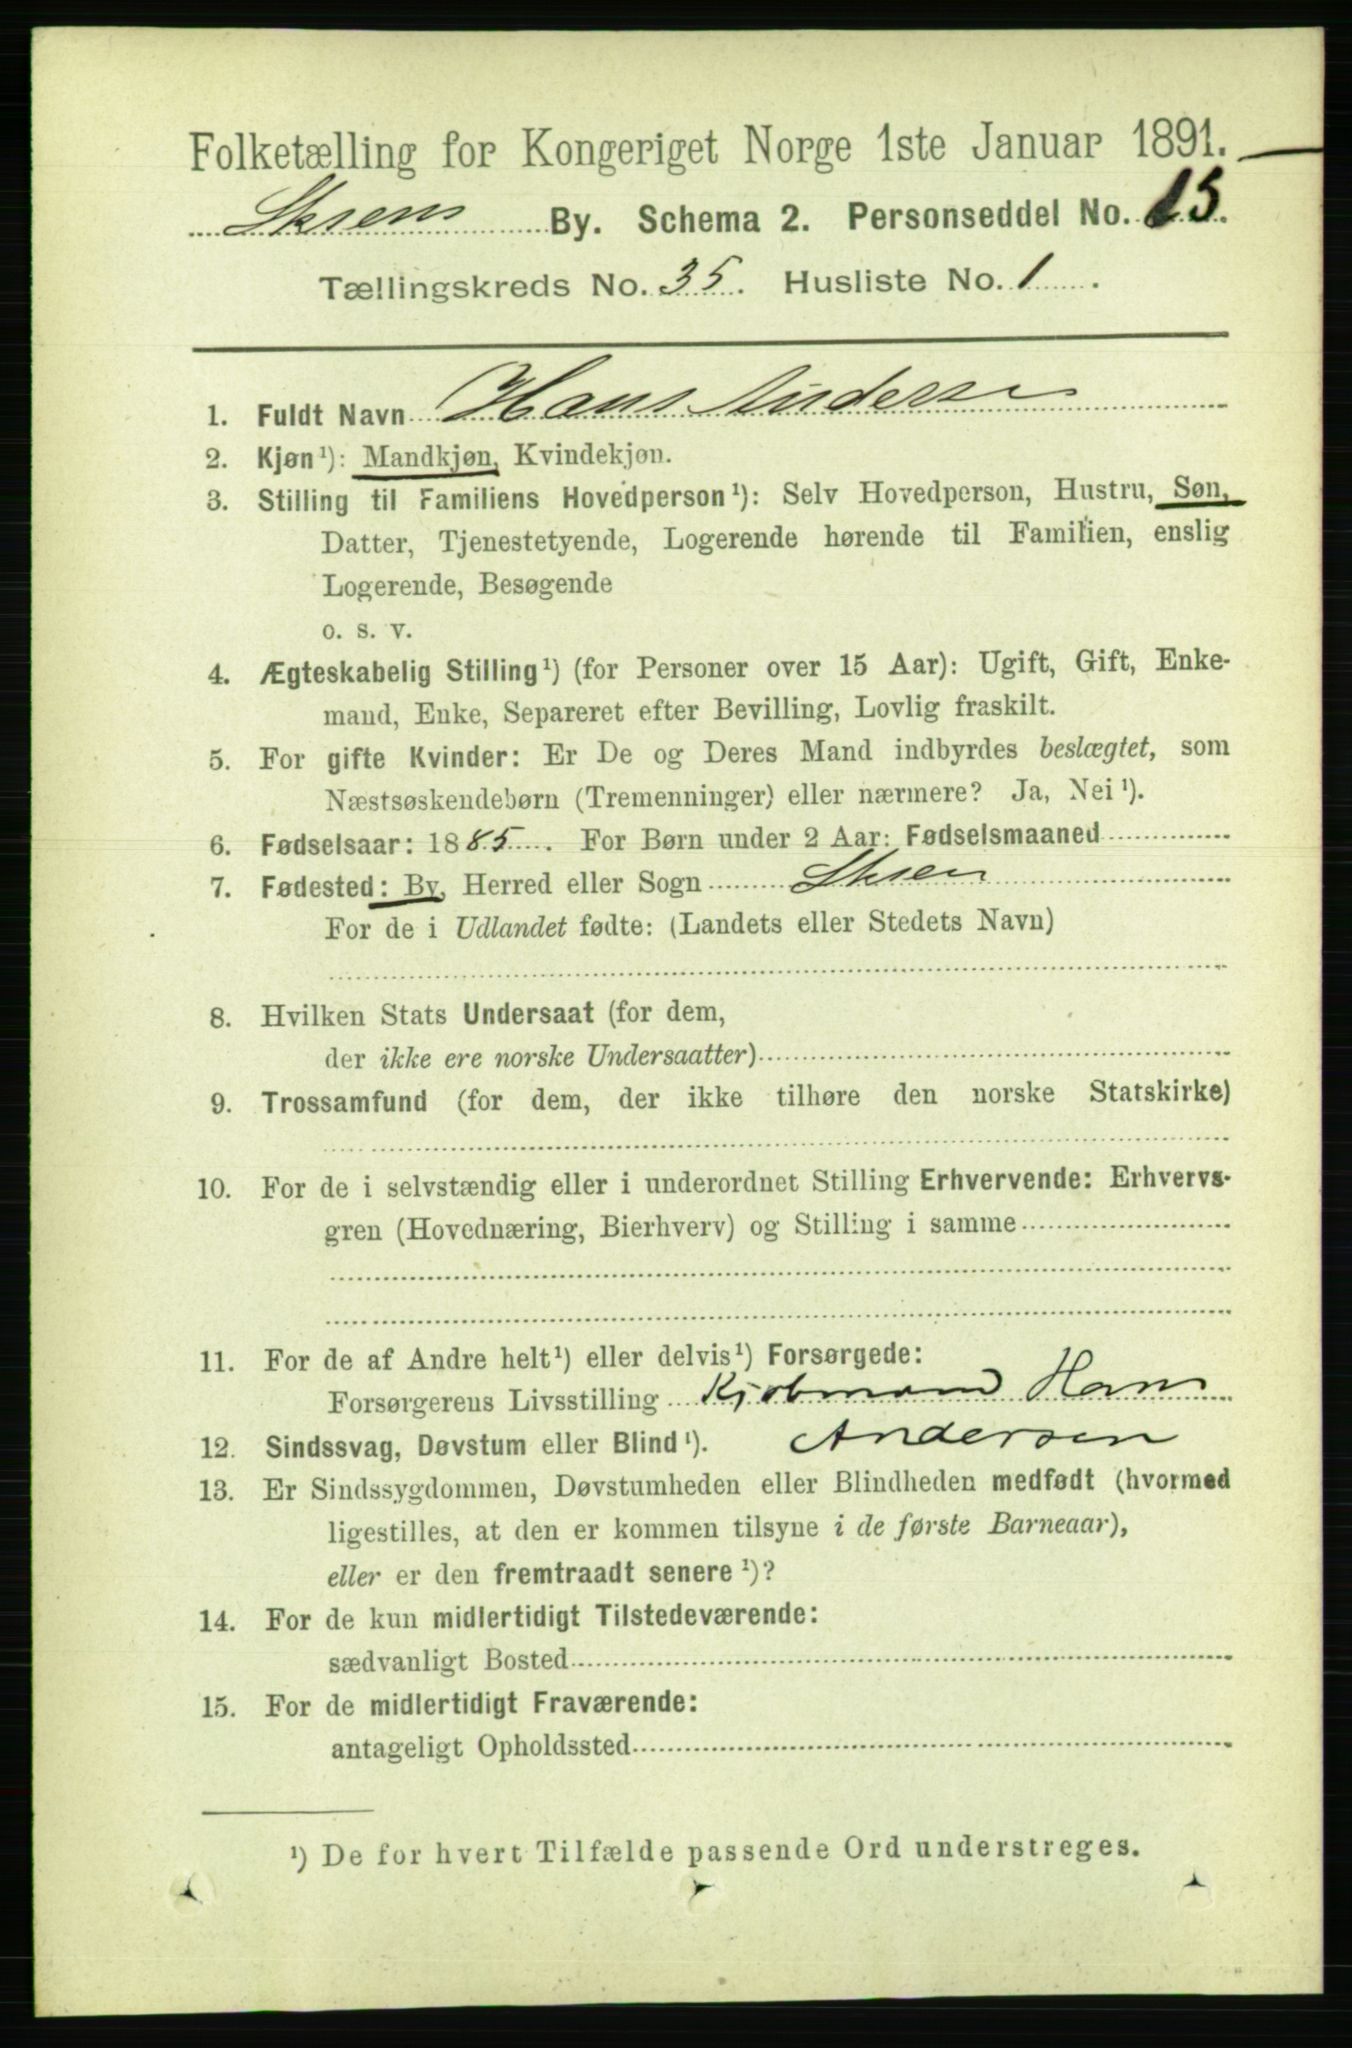 Folketælling for Kongeriget Norge 1ste Januar 1891.
Skiens By. Schema 2. Personseddel No. 15.
Tællingskreds No. 35. Husliste No. 1.
1. Fuldt Navn Hans Andersen
2. Kjøn¹): Mandkjøn, Kvindekjøn.
3. Stilling til Familiens Hovedperson¹): Selv Hovedperson, Hustru, Søn,
Datter, Tjenestetyende, Logerende hørende til Familien, enslig
Logerende, Besøgende
o. s. v.
4. Ægteskabelig Stilling¹) (for Personer over 15 Aar): Ugift, Gift, Enke-
mand, Enke, Separeret efter Bevilling, Lovlig fraskilt.
5. For gifte Kvinder: Er De og Deres Mand indbyrdes beslægtet, som
Næstsøskendebørn (Tremenninger) eller nærmere? Ja, Nei¹).
6. Fødselsaar: 1885. For Børn under 2 Aar: Fødselsmaaned
7. Fødested: By, Herred eller Sogn Skien
For de i Udlandet fødte: (Landets eller Stedets Navn)
8. Hvilken Stats Undersaat (for dem,
der ikke ere norske Undersaatter)
9. Trossamfund (for dem, der ikke tilhøre den norske Statskirke)
10. For de i selvstændig eller i underordnet Stilling Erhvervende: Erhvervs-
gren (Hovednæring, Bierhverv) og Stilling i samme
11. For de af Andre helt¹) eller delvis¹) Forsørgede:
Forsørgerens Livsstilling Kjøbmand Hans
12. Sindssvag, Døvstum eller Blind¹). Andersen
13. Er Sindssygdommen, Døvstumheden eller Blindheden medfødt (hvormed
ligestilles, at den er kommen tilsyne i de første Barneaar),
eller er den fremtraadt senere¹)?
14. For de kun midlertidigt Tilstedeværende:
sædvanligt Bosted
15. For de midlertidigt Fraværende:
antageligt Opholdssted
¹) De for hvert Tilfælde passende Ord understreges.